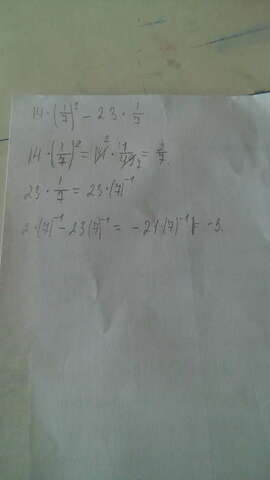 14 · (1/7)² − 23 · 1/7
14 · (1/7)² = 14 2 · 1/49 7 = 2/7.
23 · 1/7 = 23 · (7)⁻¹
2 · (7)⁻¹ − 23(7)⁻¹ = −21·(7)⁻¹ = −3.